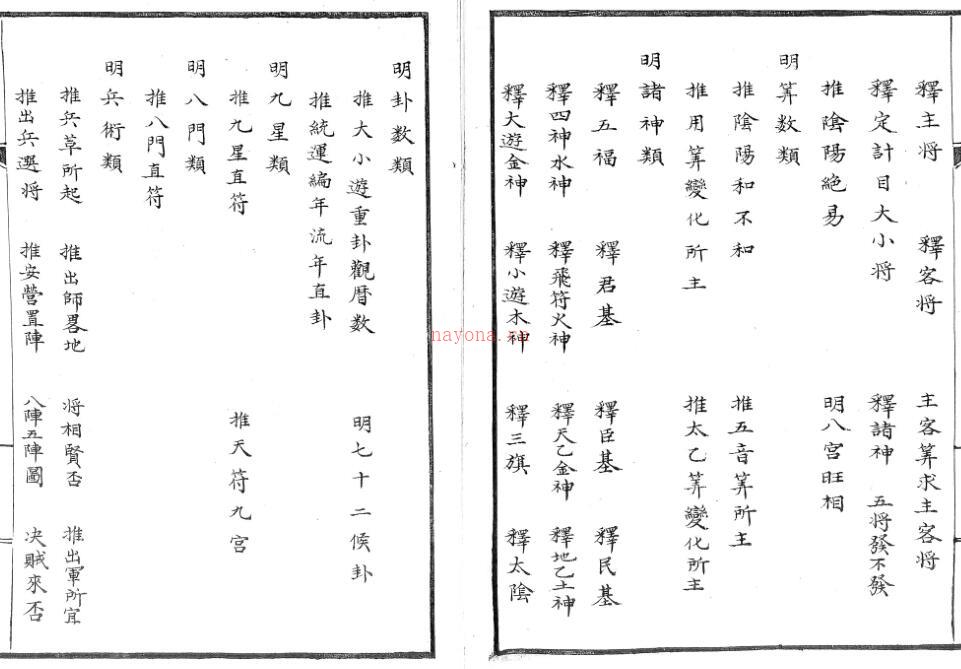 釋主将 釋客将 主客筭求主客将
釋定計目大小将 釋諸神 五将發不發
推陰陽絶易 明八宮旺相
明筭数類
推陰陽和不和 推五音筭所主
推用筭變化所主 推太乙筭變化所主
明諸神類
釋五福 釋君基 釋臣基 釋民基
釋四神水神 釋飛符火神 釋天乙金神 釋地乙土神
釋大遊金神 釋小遊木神 釋三旗 釋太陰
明卦数類
推大小遊重卦觀曆数 明七十二候卦
推統運編年流年直卦
明九星類
推九星直符 推天符九宮
明八門類
推八門直符
明兵術類
推兵草所起 推出師畧地 将相賢否 推出軍所宜
推出兵選将 推安營置陣 八陣五陣圖 决賊來否
nayona.cn